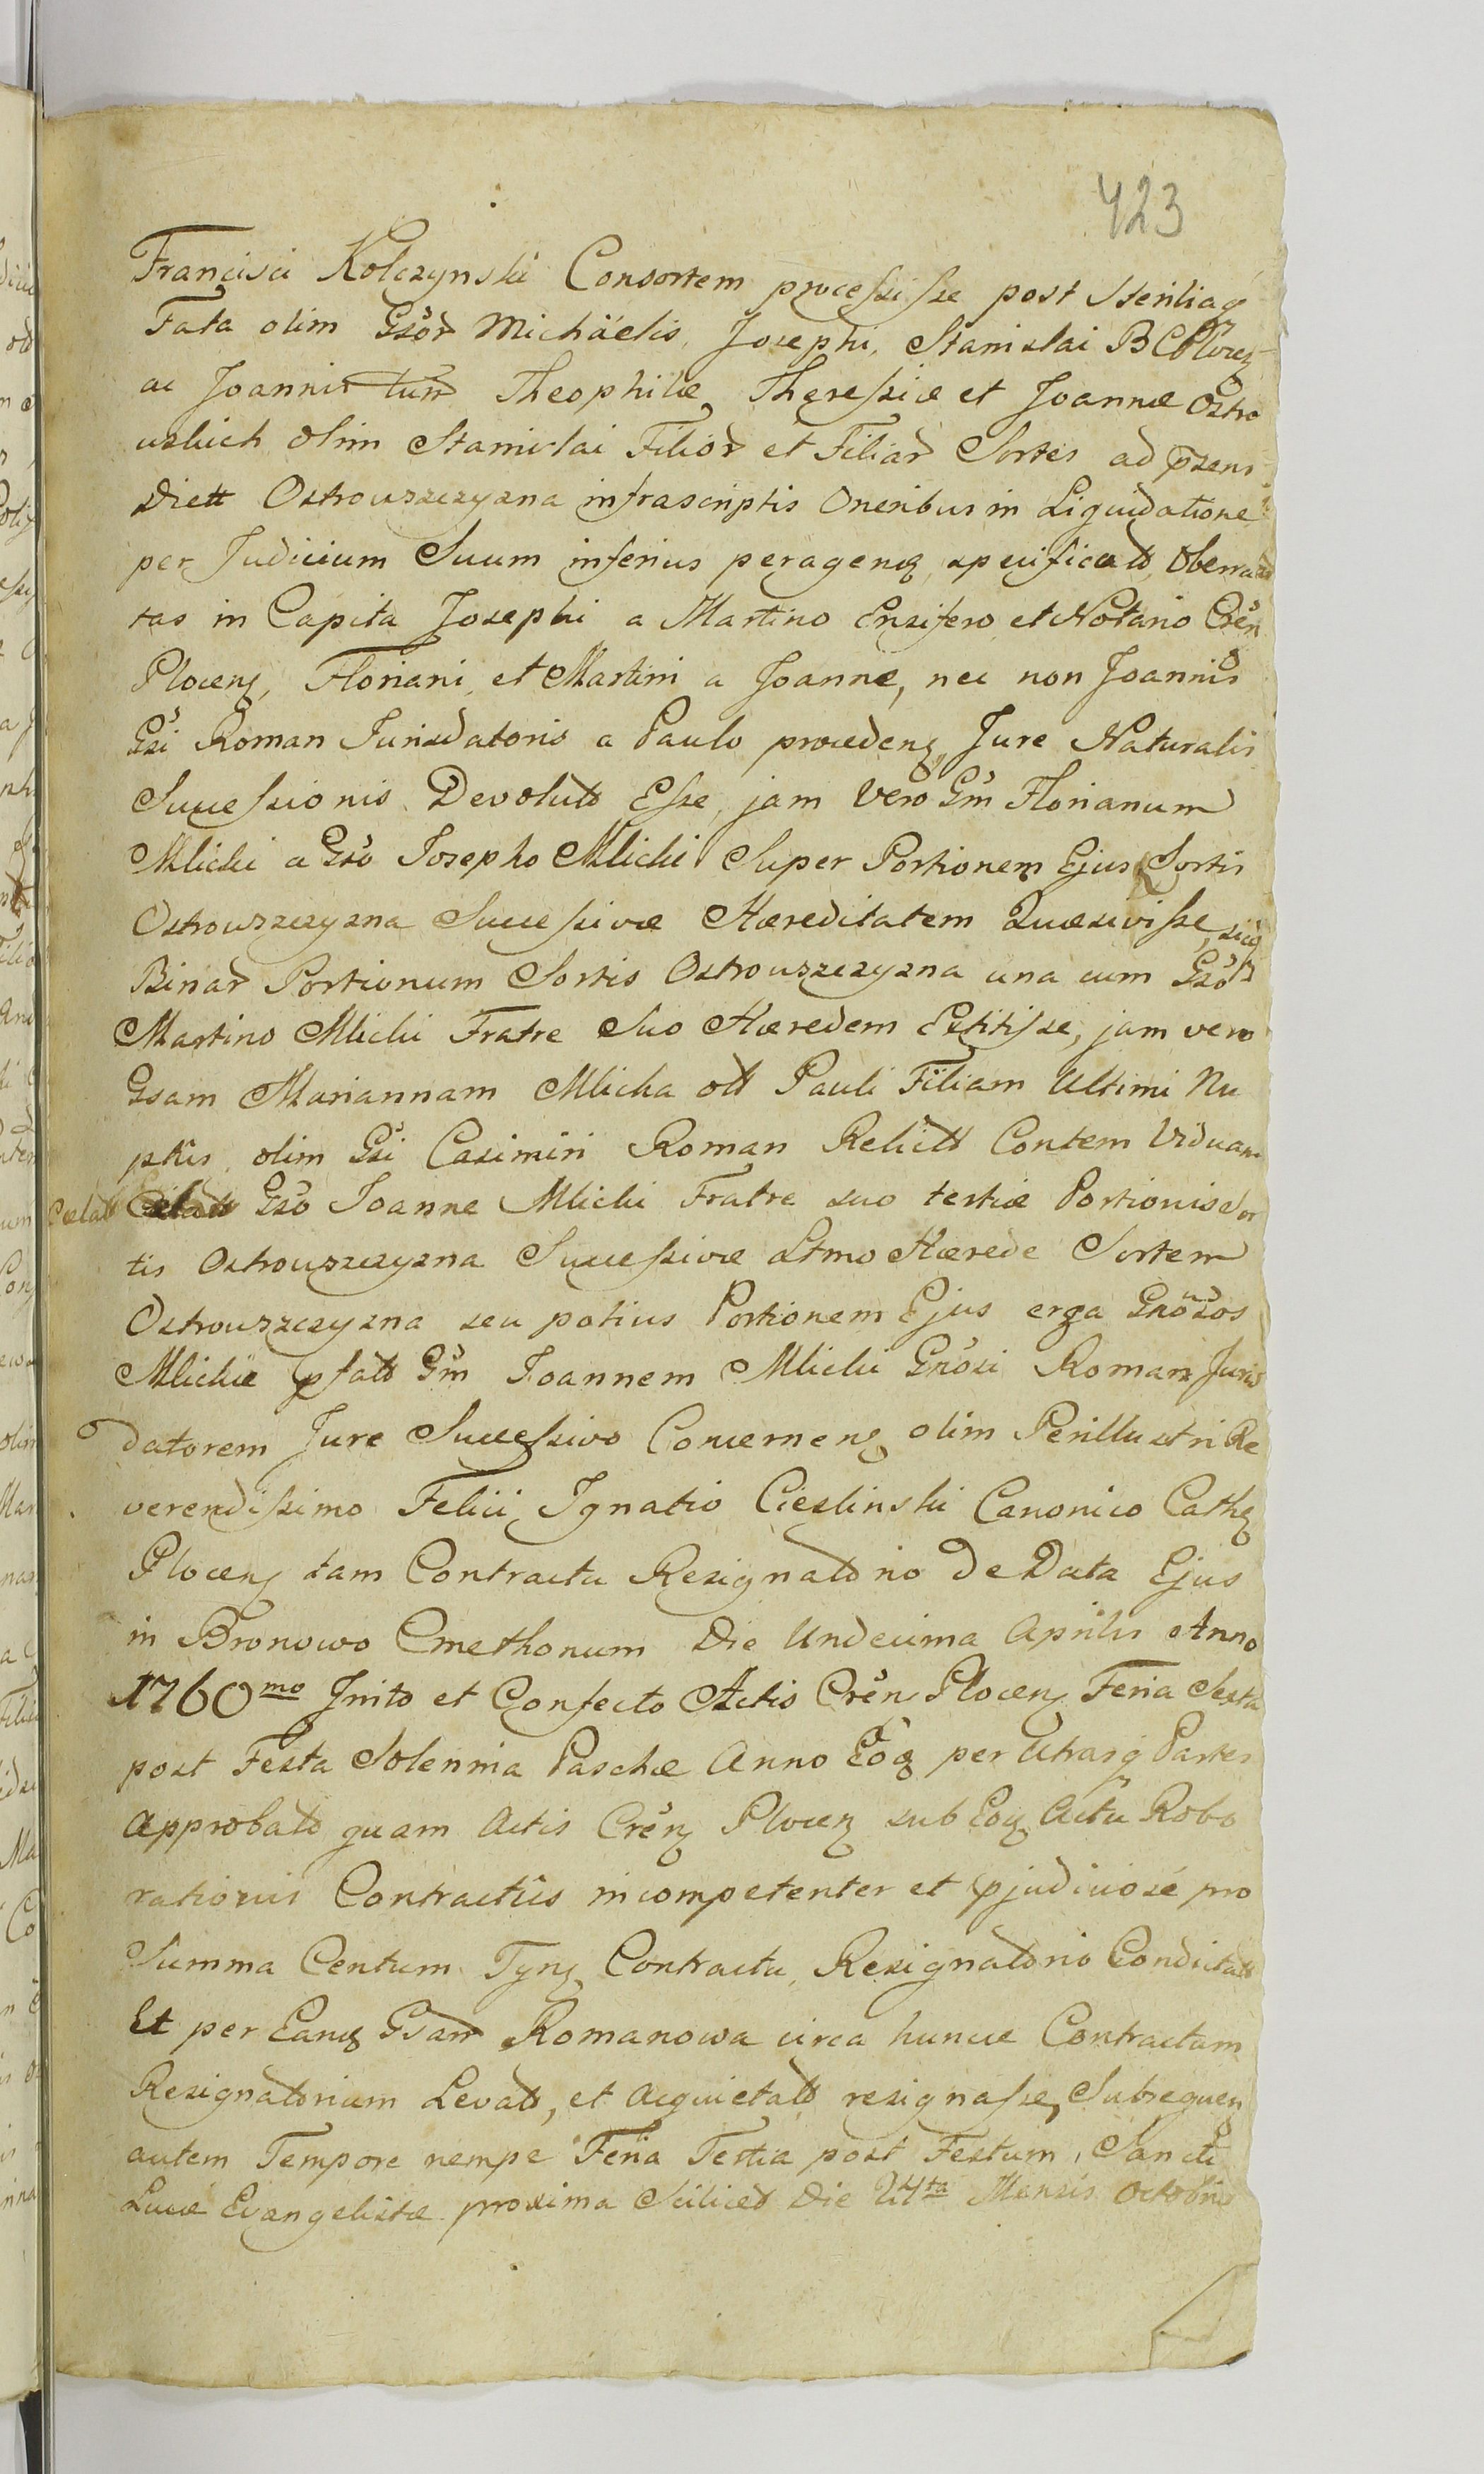 423
Francisci Kolczynski Consortem processisse post Steriliaq
Fata olim Gsor Michäelis, Josephi, Stanislai B C Plocen
ac Joannis tum Theophilæ, Theressiæ et Joannæ Ostro
wskich olim Stanislai Filior et Filiar Sortes ad psens
Diett Ostrowszczyzna infrascriptis Oneribus in Liquidatione
per Judicium Suum inferius peragenq specificato, Oberra
tas in Capita Josephi a Martino Ensifero et Notario Cren
Plocens, Floriani, et Martini a Joanne, nec non Joannis
Gsi Roman Jurisdatoris a Paulo procedens, Jure Naturalis
Successionis Devoluts Esse, jam vero Gm Florianum
Mlicki a Gso Josepho Mlicki Super Portionem Ejus Sortis
Ostrowszczyzna Successivæ Hæreditatem Quæsivisse, sicq
Binar Portionum Sortis Ostrowszczyzna una cum Gso
Martino Mlicki Fratre Suo Hæredem Extitisse, jam vero
Gsam Mariannam Mlicka ott Pauli Filiam Ultimi Nu
ptiis olim Gsi Casimiri Roman Relictt Contem Viduam
Cælatt Gso Joanne Mlicki Fratre suo tertiæ Portionis Sor
tis Ostrowszczyzna Successivæ Ltmo Hærede Sortem
Ostrowszczyzna seu potius Portionem Ejus erga Gnosos
Mlickie pfatt Gm Joannem Mlicki Gnosi Roman Juris
datorem Jure Successivo Concernens olim Perillustri Re
verendissimo Felici Ignatio Cieslinski Canonico Cathq
Plocens tam Contractu Resignatorio De Data Ejus
in Bronowo Cmethonum Die Undecima Aprilis Anno
1760mo Inito et Confecto Actis Crens Plocens Feria Sexta
post Festa Solennia Paschæ Anno Eoq per Utrasq Partes
approbato quam Actis Crens Plocens sub Eoq Actu Robo
rationis Contractûs incompetenter et pjudiciose pro
Summa Centum Tyns Contractu Resignatorio Condictatt
Et per Eanq Gsam Romanowa circa huncce Contractum
Resignatorium Levato, et acquietatt resignasse, Subsequens
autem Tempore nempe Feria Tertia post Festum Sancti
Lucæ Evangelistæ proxima Scilicet Die 24ta Mensis Octobris